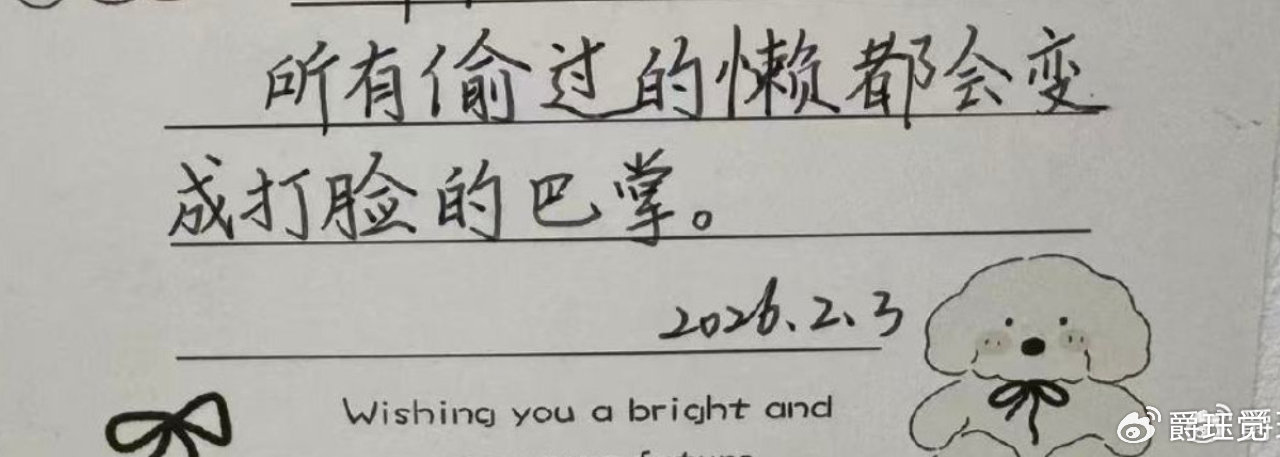 所有偷过的懒都会变
成打脸的巴掌。
2026.2.3
Wishing you a bright and